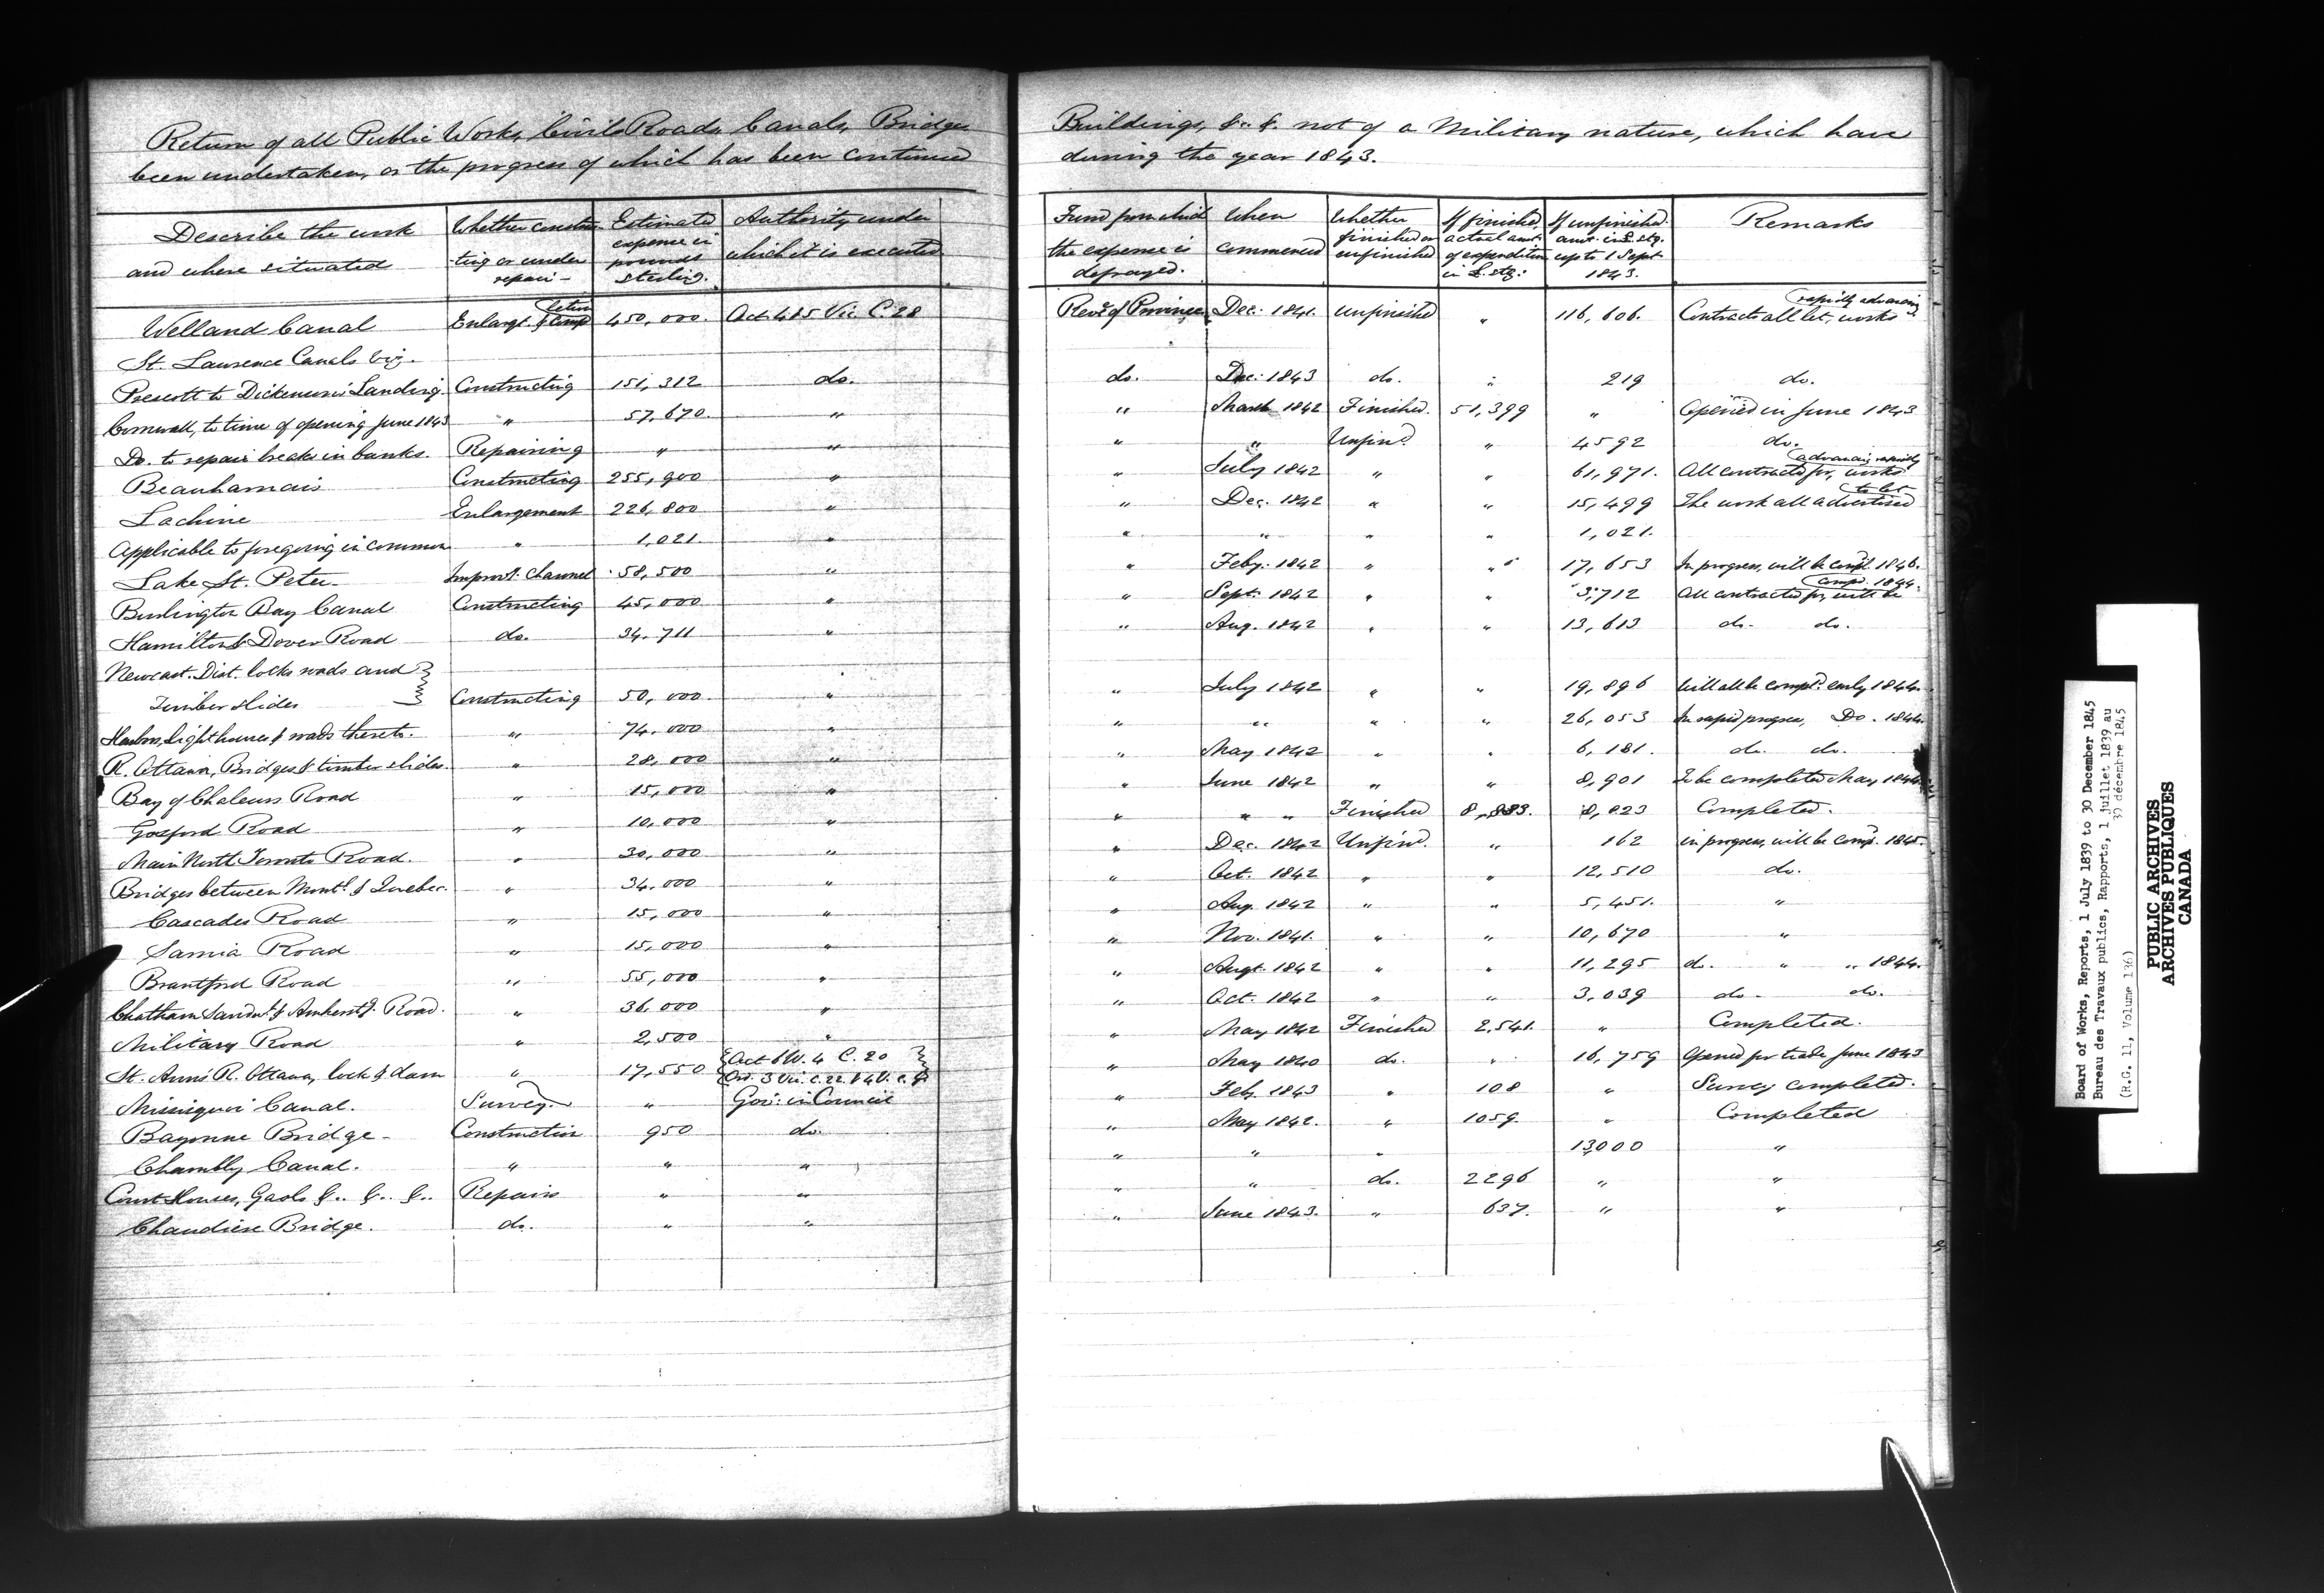 Return of all Public Works, Civil Roads, Canals, Bridges
been undertaken, or the progress of which has been continued
Describe the work and where situated | Whether construc-ting or under repair- | Estimated expense in pounds sterling. | Authority under which it is executed
Welland Canal | Enlargt. & Completion | 450,000. | Act 4 & 5 Vic. C 28
St. Laurence Canals viz.
Prescott to Dickenson's Landing. | Constructing | 151,312 | do.
Cornwall, to time of opening June 1843 | " | 57,670. | "
Do. to repair breaks in banks. | Repairing | " | "
Beauharnais | Constructing | 255,900 | "
Lachine | Enlargement | 226,800 | "
Applicable to foregoing in common | " | 1,021. | "
Lake St. Peter | Improvt. Channel | 58,500 | "
Burlington Bay Canal | Constructing | 45,000 | "
Hamilton & Dover Road | do. | 34.711 | "
Newcast. Dist. locks roads and
Timber slides | Constructing | 50,000 | "
Harbors, Light houses & roads thereto. | " | 74.000 | "
R. Ottawa, Bridges & timber slides. | " | 28,000 | "
Bay of Chaleurs Road | " | 15,000 | "
Gosford Road | " | 10,000 | "
Main North Toronto Road. | " | 30,000 | "
Bridges between Montl. & Quebec. | " | 34.000 | "
Cascades Road | " | 15,000 | "
Sarnia Road | " | 15,000 | "
Brantford Road | " | 55,000 | "
Chatham Sandwh. & Amherstg. Road. | " | 36,000 | "
Military Road | " | 2,500 | "
St. Ann's R. Ottawa, lock & dam | " | 17,550 | Act 6 W. 4 C. 20
Ord. 3 Vic. C. 22. & 4 V. C.
Missisquoi Canal. | Survey. | " | Gov. in Council
Bayonne Bridge- | Construction | 950 | do.
Chambly Canal. | " | " | "
Court Houses, Gaols &.. &.. &.. | Repairs | " | "
Chaudiere Bridge. | do. | " | "
Buildings, &c. &. not of a Military nature, which have
during the year 1843.
Fund from which the expense is defrayed. | When commenced | Whether finished or unfinished | If finished, actual amt. of expenditure in £. stg: | If unfinished amt. in £. stg. up to 1 Sept. 1843. | Remarks
Reve. of Province | Dec. 1841. | Unfinished | " | 116,606. | Contracts all let, works rapidly advancing
do. | Dec. 1843 | do. | " | 219 | do.
" | March 1842 | Finished. | 51,399 | " | Opened in June 1843
" | " | Unfind. | " | 4592 | do.
" | July 1842 | " | " | 61,971. | All contracted for, works advancing rapidly
" | Dec. 1842 | " | " | 15,499 | The work all advertised to let
" | " | " | " | 1,021.
" | Feby. 1842 | " | " | 17,653 | In progress, will be compl. 1846.
" | Sept. 1842 | " | " | 3,712 | All contracted for, will be compd. 1844.
" | Aug. 1842 | " | " | 13,613 | do. do.
" | July 1842 | " | " | 19,896 | Will all be compd. early 1844.
" | " | " | " | 26,053 | In rapid progress, Do. 1844.
" | May 1842 | " | " | 6,181. | do. do.
" | June 1842 | " | " | 8,901 | To be completed May 1844
" | " " | Finished | 8,883. | 8,823 | Completed.
" | Dec. 1842 | Unfind. | " | 162 | in progress, will be comp. 1845.
" | Oct. 1842 | " | " | 12,510 | do.
" | Aug. 1842 | " | " | 5,451. | "
" | Nov. 1841. | " | " | 10,670 | "
" | Augt. 1842 | " | " | 11,295 | do. " " 1844.
" | Oct. 1842 | " | " | 3,039 | do - do.
" | May 1842 | Finished | 2,541. | " | Completed.
" | May 1840 | do. | " | 16,759 | Opened for trade June 1843
" | Feb. 1843 | " | 108 | " | Survey completed.
" | May 1842. | " | 1059. | " | Completed
" | " | " | 13000 | "
" | " | do. | 2296 | " | "
" | June 1843. | " | 637. | " | "
Board of Works, Reports, 1 July 1839 to 30 December 1845
Bureau des Travaux publics, Rapports, 1 juillet 1839 au
30 décembre 1845
(R.G. 11, Volume 136)
PUBLIC ARCHIVES
ARCHIVES PUBLIQUES
CANADA